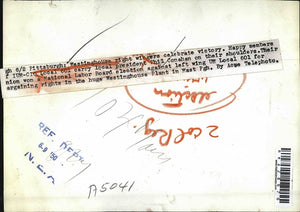 gh 6/2 Pittsburgh: Westinghouse right wingers celebrate victory. Happy members
f IUM-CIO Local 601 carry local president Phil Conahan on their shoulders. Their
nion won a National Labor Board election against left wing UE Local 601 for
argaining rights in the huge Westinghouse Plant in West Pgh. By Acme Telephoto.
election
2 col Reg
REF. DEPT.
N. E. A.
A5041